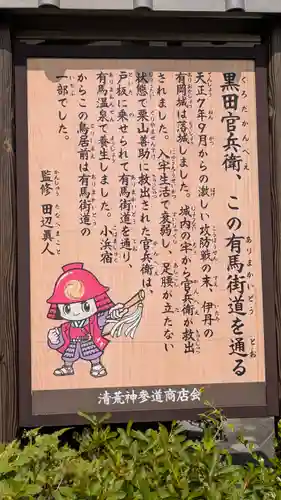 黒田官兵衛、この有馬街道を通る
天正7年9月からの激しい攻防戦の末、伊丹の
有岡城は落城しました。城内の牢から官兵衛が救出
されました。入牢生活で衰弱し、足腰が立たない
状態で栗山善助に救出された官兵衛は、
戸板に乗せられて有馬街道を通り、
有馬温泉で養生しました。小浜宿
からこの鳥居前は有馬街道の
一部でした。
監修 田辺眞人
清荒神参道商店会